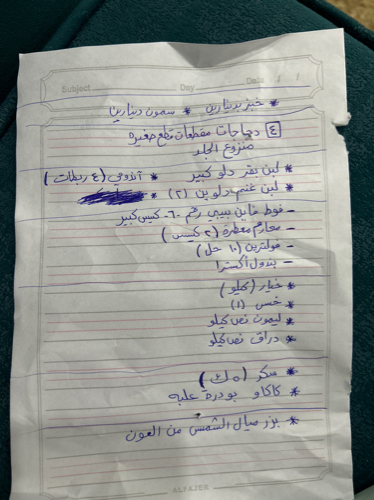 Subject Day Date / /
* خبز بدينارين * صمون دينارين
٤ دجاجات مقطعات قطع صغيره
منزوع الجلد
* لبن بقر دلو كبير * اندومي (٤ ربطات)
* لبن غنم دلوين (٢) *
- فوط فاين بيبي رقم ٦٠ كيس كبير
- محارم معطرة (٢ كيس)
- فولترين (١٠ حل)
- بندول اكسترا
* خيار (كيلو)
* خس (١)
* ليمون نص كيلو
* دراق نص كيلو
* سكر (٥ ك)
* كاكاو بودرة علبه
* بزر ميال الشمس من العون
ALFAJER